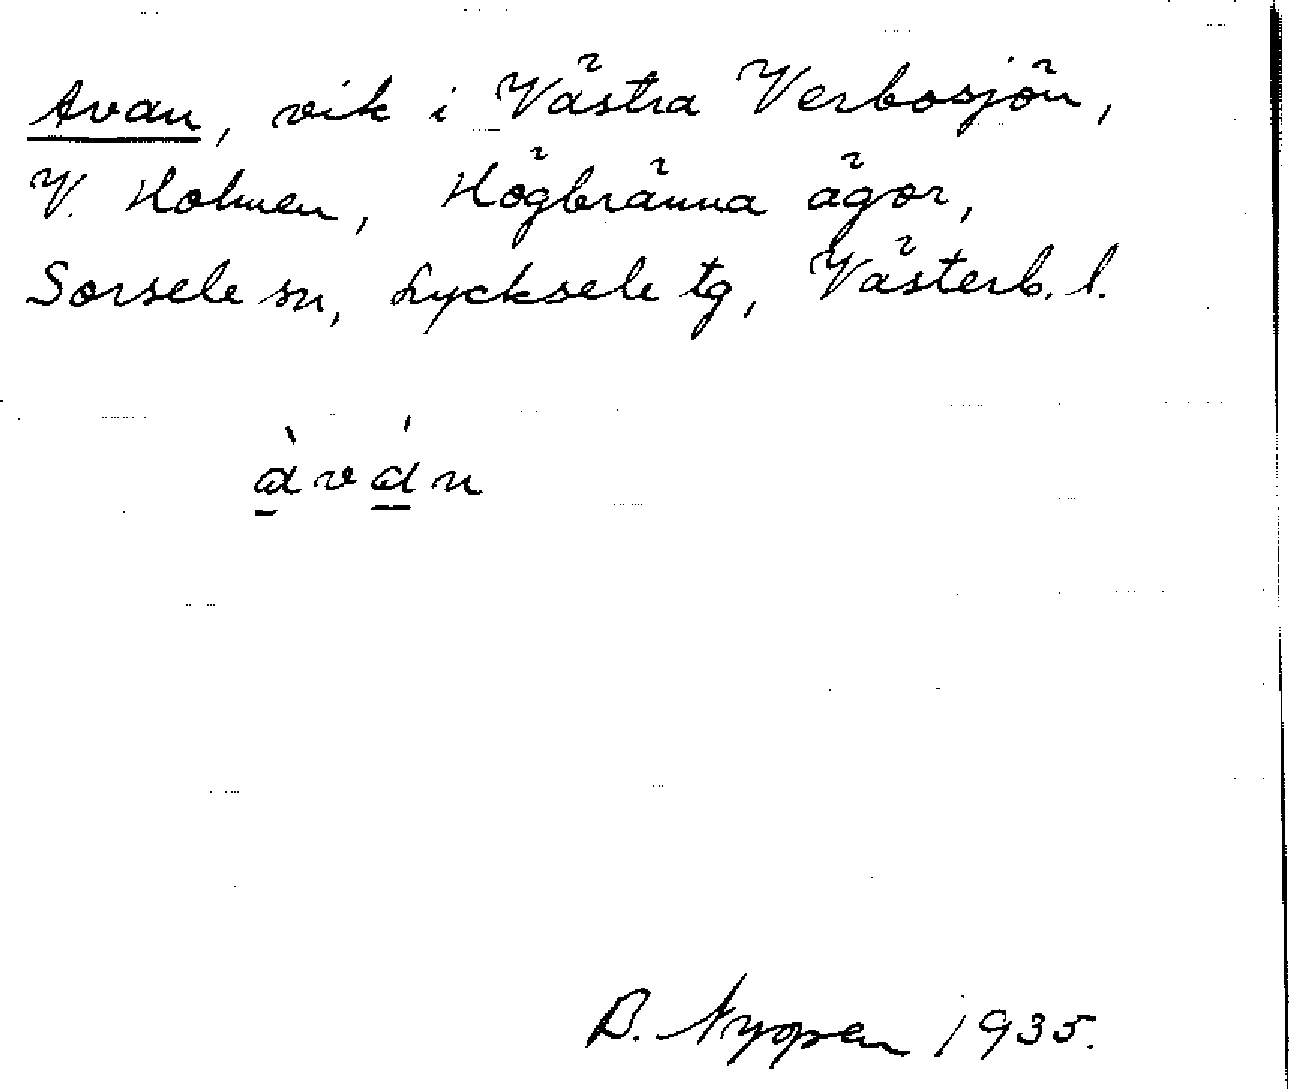 Avan, vik i Västra Verbosjön,
V. Holmen, Högbränna ägor,
Sorsele sn, Lycksele tg, Västerb. l.
àván
B. 1935.